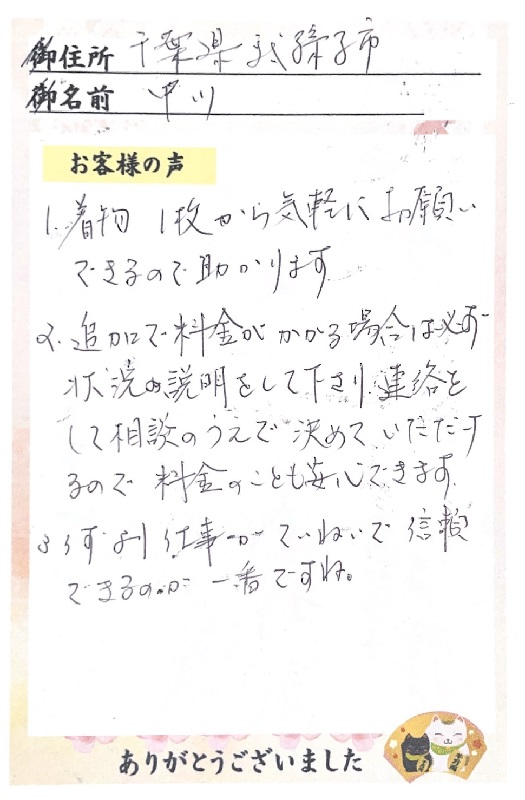 御住所 千葉県我孫子市
御名前 中川
お客様の声
1. 着物 1枚から気軽にお願い
できるので助かります
2. 追加で料金がかかる場合は必ず
状況の説明をして下さり、連絡を
して相談のうえで決めていただけ
るので料金のことも安心できます。
3 仕事がていねいで信頼
できるのが一番ですね。
ありがとうございました